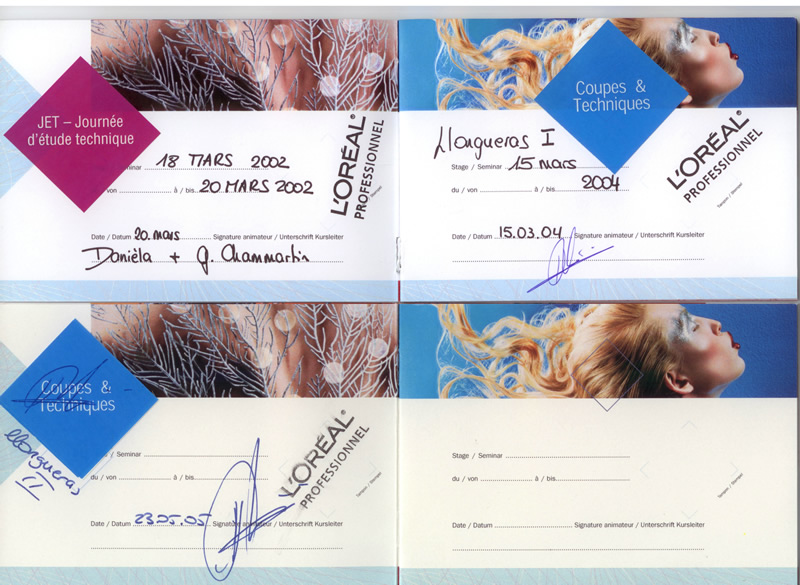 JET – Journée
d'étude technique
inar 18 MARS 2002
von à / bis 20 MARS 2002
L'ORÉAL®
PROFESSIONNEL
Tampon / Stempel
Date / Datum 20. mars Signature animateur / Unterschrift Kursleiter
Danièla + G. Chammartin
Coupes &
Techniques
Llongueras I
Stage / Seminar 15 mars
du / von à / bis 2004
L'ORÉAL®
PROFESSIONNEL
Tampon / Stempel
Date / Datum 15.03.04 Signature animateur / Unterschrift Kursleiter
Coupes &
Techniques
Llongueras
II
/ Seminar
du / von à / bis
L'ORÉAL®
PROFESSIONNEL
Tampon / Stempel
Date / Datum 23.05.05 Signature animateur / Unterschrift Kursleiter
Stage / Seminar
du / von à / bis
Tampon / Stempel
Date / Datum Signature animateur / Unterschrift Kursleiter